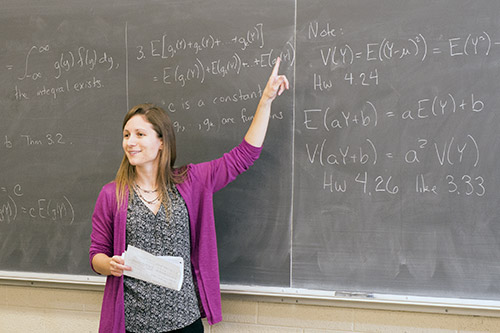 ∫_{-∞}^{∞} g(y) f(y) dy,
the integral exists.
b Thm 3.2
= C
= c E(g(Y
3. E[g₁(Y)+g₂(Y)+...+gₖ(Y)]
= E(g₁(Y))+E(g₂(Y))+...+E(gₖ(Y))
c is a constant
g₁, gₖ are functions
Note:
V(Y) = E((Y-μ)²) = E(Y²)
HW 4.24
E(aY+b) = aE(Y)+b
V(aY+b) = a²V(Y)
HW 4.26 like 3.33